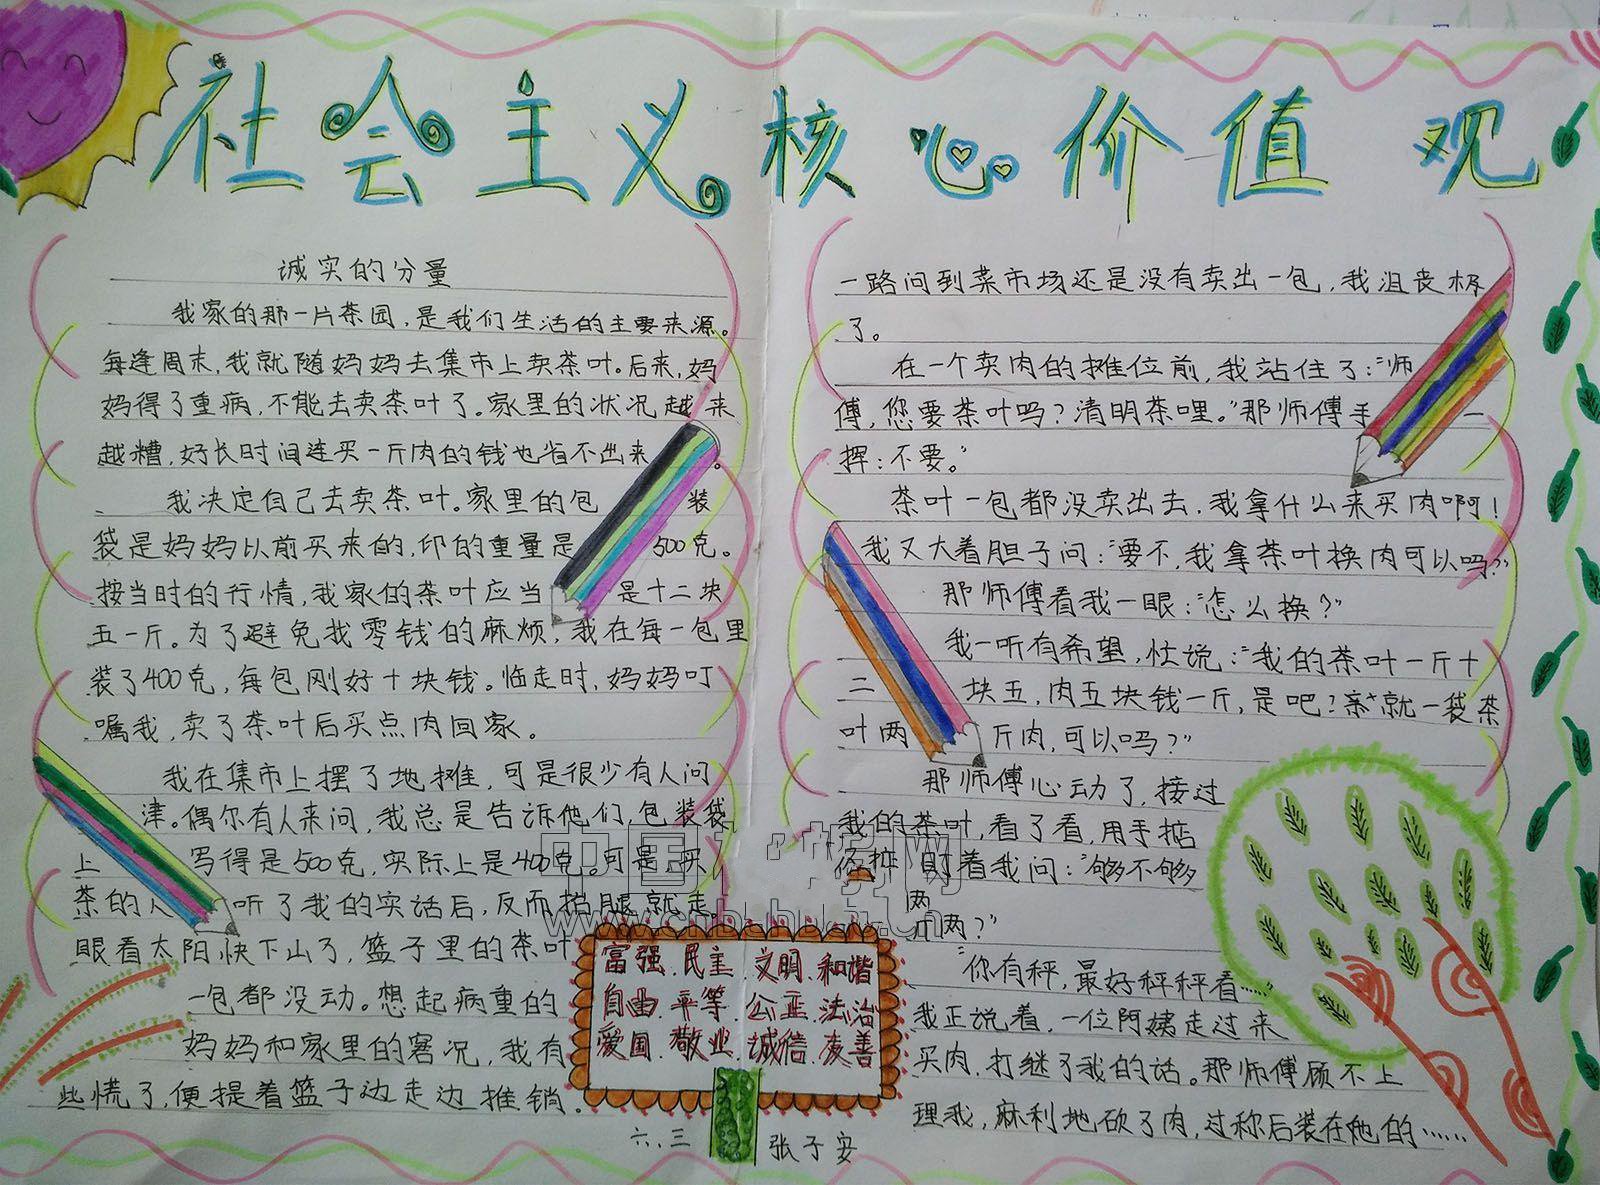 社会主义核心价值观
诚实的分量
我家的那一片茶园，是我们生活的主要来源。
每逢周末，我就随妈妈去集市上卖茶叶。后来，妈
妈得了重病，不能去卖茶叶了。家里的状况越来
越糟，好长时间连买一斤肉的钱也省不出来。
我决定自己去卖茶叶。家里的包装
袋是妈妈以前买来的，印的重量是500克。
按当时的行情，我家的茶叶应当是十二块
五一斤。为了避免找零钱的麻烦，我在每一包里
装了400克，每包刚好十块钱。临走时，妈妈叮
嘱我，卖了茶叶后买点肉回家。
我在集市上摆了地摊，可是很少有人问
津。偶尔有人来问，我总是告诉他们，包装袋
上写得是500克，实际上是400克。可是，买
茶的人听了我的实话后，反而掐腿就走。
眼看太阳快下山了，篮子里的茶叶
一包都没动。想起病重的
妈妈和家里的窘况，我有
些慌了，便提着篮子边走边推销。
一路问到菜市场还是没有卖出一包，我沮丧极
了。
在一个卖肉的摊位前，我站住了：“师
傅，您要茶叶吗？清明茶哩。”那师傅手一
挥：不要。”
茶叶一包都没卖出去，我拿什么来买肉啊！
我又大着胆子问：“要不，我拿茶叶换肉可以吗？”
那师傅看我一眼：“怎么换？”
我一听有希望，忙说：“我的茶叶一斤十
二块五，肉五块钱一斤，是吧？就一袋茶
叶两斤肉，可以吗？”
那师傅心动了，接过
我的茶叶，看了看，用手掂
掂，盯着我问：“够不够
两？”
“你有秤，最好秤秤看……”
我正说着，一位阿姨走过来
买肉，打继了我的话。那师傅顾不上
理我，麻利地砍了肉，过称后装在她的……
富强、民主、文明、和谐
自由、平等、公正、法治
爱国、敬业、诚信、友善
六、三 张子安
www.cnbaihua.cn